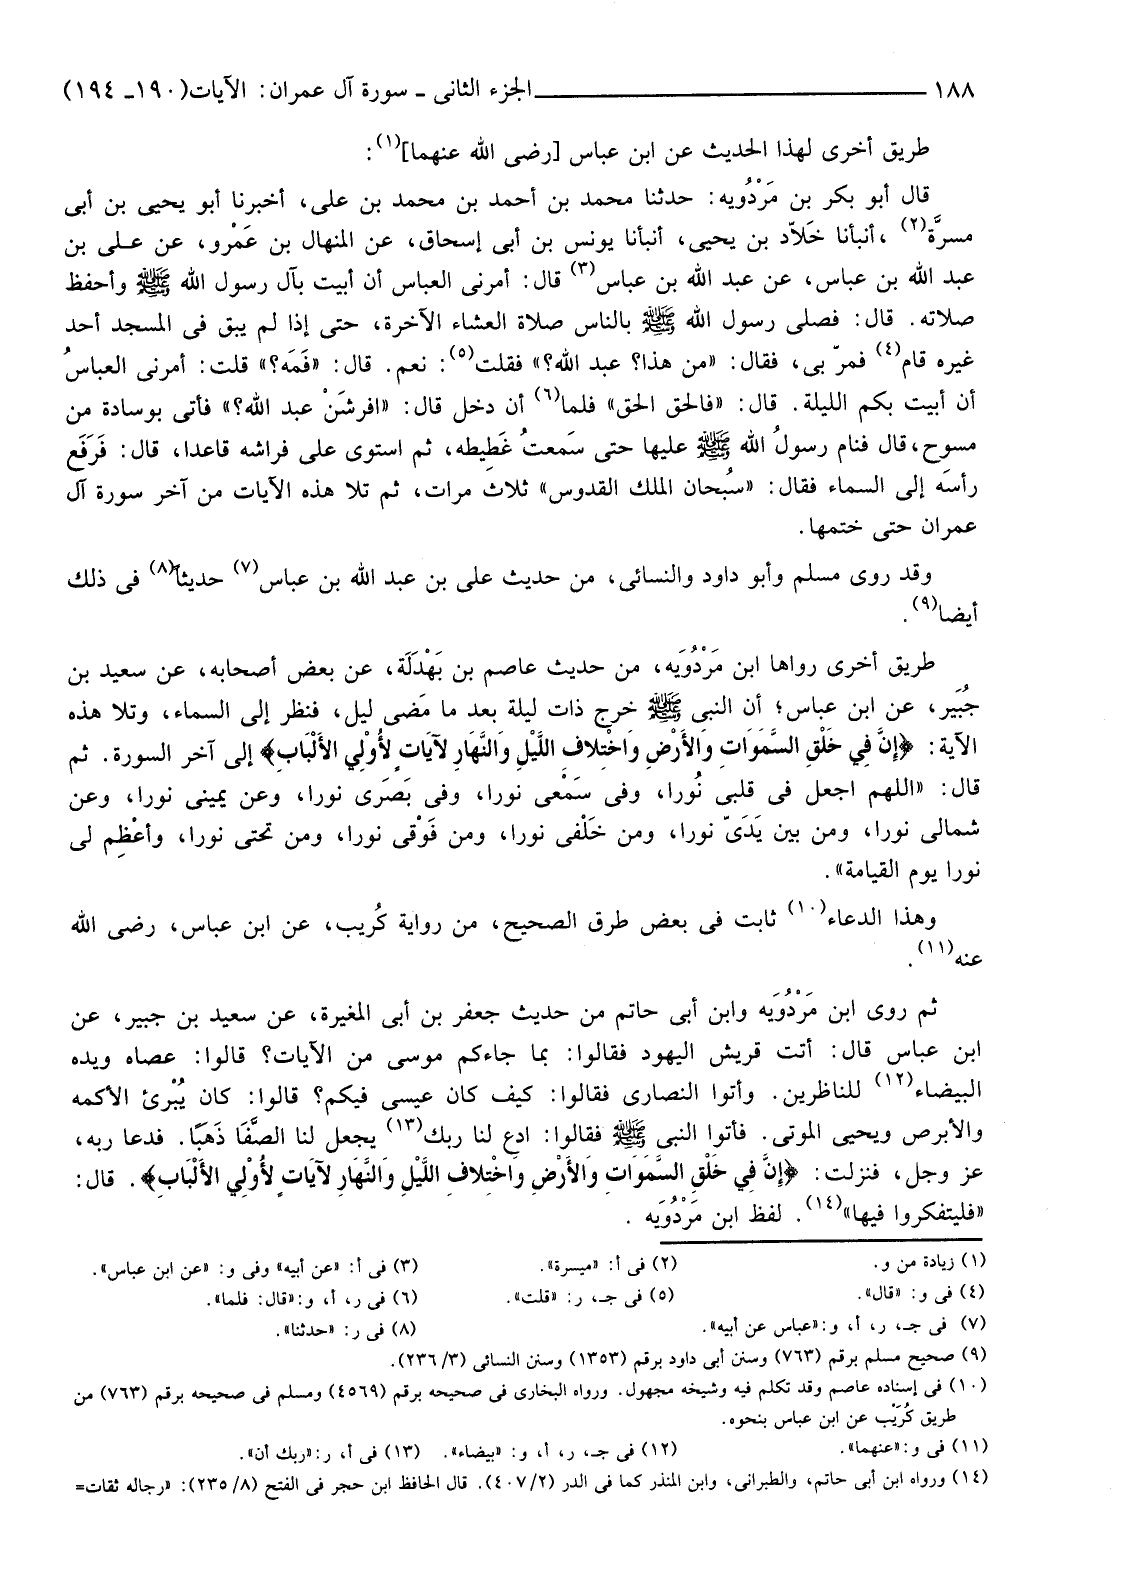 ١٨٨ ــــــــــ الجزء الثانى ـ سورة آل عمران: الآيات(١٩٠ـ ١٩٤)
طريق أخرى لهذا الحديث عن ابن عباس [رضى الله عنهما](١):
قال أبو بكر بن مَرْدُويه: حدثنا محمد بن أحمد بن محمد بن على، أخبرنا أبو يحيى بن أبى
مسرَّة(٢) ،أنبأنا خَلاّد بن يحيى، أنبأنا يونس بن أبى إسحاق، عن المنهال بن عَمْرو، عن على بن
عبد الله بن عباس، عن عبد الله بن عباس(٣) قال: أمرنى العباس أن أبيت بآل رسول الله ﷺ وأحفظ
صلاته. قال: فصلى رسول الله ﷺ بالناس صلاة العشاء الآخرة، حتى إذا لم يبق فى المسجد أحد
غيره قام(٤) فمرّ بى، فقال: «من هذا؟ عبد الله؟» فقلت(٥): نعم. قال: «فَمَه؟» قلت: أمرنى العباسُ
أن أبيت بكم الليلة. قال: «فالحق الحق» فلما(٦) أن دخل قال: «افرشَنْ عبد الله؟» فأتى بوسادة من
مسوح،قال فنام رسولُ الله ﷺ عليها حتى سَمعتُ غَطِيطه، ثم استوى على فراشه قاعدا، قال: فَرَفَع
رأسَه إلى السماء فقال: «سُبحان الملك القدوس» ثلاث مرات، ثم تلا هذه الآيات من آخر سورة آل
عمران حتى ختمها.
وقد روى مسلم وأبو داود والنسائى، من حديث على بن عبد الله بن عباس(٧) حديثاً(٨) فى ذلك
أيضا(٩).
طريق أخرى رواها ابن مَرْدُويَه، من حديث عاصم بن بَهْدَلَة، عن بعض أصحابه، عن سعيد بن
جُبَير، عن ابن عباس؛ أن النبى ﷺ خرج ذات ليلة بعد ما مَضى ليل، فنظر إلى السماء، وتلا هذه
الآية: ﴿إِنَّ فِي خَلْقِ السَّمَوَاتِ وَالأَرْضِ وَاخْتِلافِ اللَّيْلِ وَالنَّهَارِ لآيَاتٍ لأُوْلِي الأَلْبَابِ﴾ إلى آخر السورة. ثم
قال: «اللهم اجعل فى قلبى نُورا، وفى سَمْعى نورا، وفى بَصَرَى نورا، وعن يمينى نورا، وعن
شمالى نورا، ومن بين يَدَىّ نورا، ومن خَلْفى نورا، ومن فَوْقى نورا، ومن تحتى نورا، وأعْظِم لى
نورا يوم القيامة».
وهذا الدعاء(١٠) ثابت فى بعض طرق الصحيح، من رواية كُريب، عن ابن عباس، رضى الله
عنه(١١).
ثم روى ابن مَرْدُويَه وابن أبى حاتم من حديث جعفر بن أبى المغيرة، عن سعيد بن جبير، عن
ابن عباس قال: أتت قريش اليهود فقالوا: بما جاءكم موسى من الآيات؟ قالوا: عصاه ويده
البيضاء(١٢) للناظرين. وأتوا النصارى فقالوا: كيف كان عيسى فيكم؟ قالوا: كان يُبْرئ الأكمه
والأبرص ويحيى الموتى. فأتوا النبى ﷺ فقالوا: ادع لنا ربك(١٣) يجعل لنا الصَّفَا ذَهَبًا. فدعا ربه،
عز وجل، فنزلت: ﴿إِنَّ فِي خَلْقِ السَّمَوَاتِ وَالأَرْضِ وَاخْتِلافِ اللَّيْلِ وَالنَّهَارِ لآيَاتٍ لأُوْلِي الأَلْبَابِ﴾. قال:
«فليتفكروا فيها»(١٤). لفظ ابن مَرْدُويَه .
(١) زيادة من و. (٢) فى أ: «ميسرة». (٣) فى أ: «عن أبيه» وفى و: «عن ابن عباس».
(٤) فى و: «قال». (٥) فى جـ، ر: «قلت». (٦) فى ر، أ، و:«قال: فلما».
(٧) فى جـ، ر، أ، و:«عباس عن أبيه». (٨) فى ر: «حدثنا».
(٩) صحيح مسلم برقم (٧٦٣) وسنن أبى داود برقم (١٣٥٣) وسنن النسائى (٣/ ٢٣٦).
(١٠) فى إسناده عاصم وقد تكلم فيه وشيخه مجهول. ورواه البخارى فى صحيحه برقم (٤٥٦٩) ومسلم فى صحيحه برقم (٧٦٣) من
طريق كُرَيْب عن ابن عباس بنحوه.
(١١) فى و:«عنهما». (١٢) فى جـ، ر، أ، و: «بيضاء». (١٣) فى أ، ر:«ربك أن».
(١٤) ورواه ابن أبى حاتم، والطبرانى، وابن المنذر كما فى الدر (٢/ ٤٠٧). قال الحافظ ابن حجر فى الفتح (٨/ ٢٣٥): «رجاله ثقات=